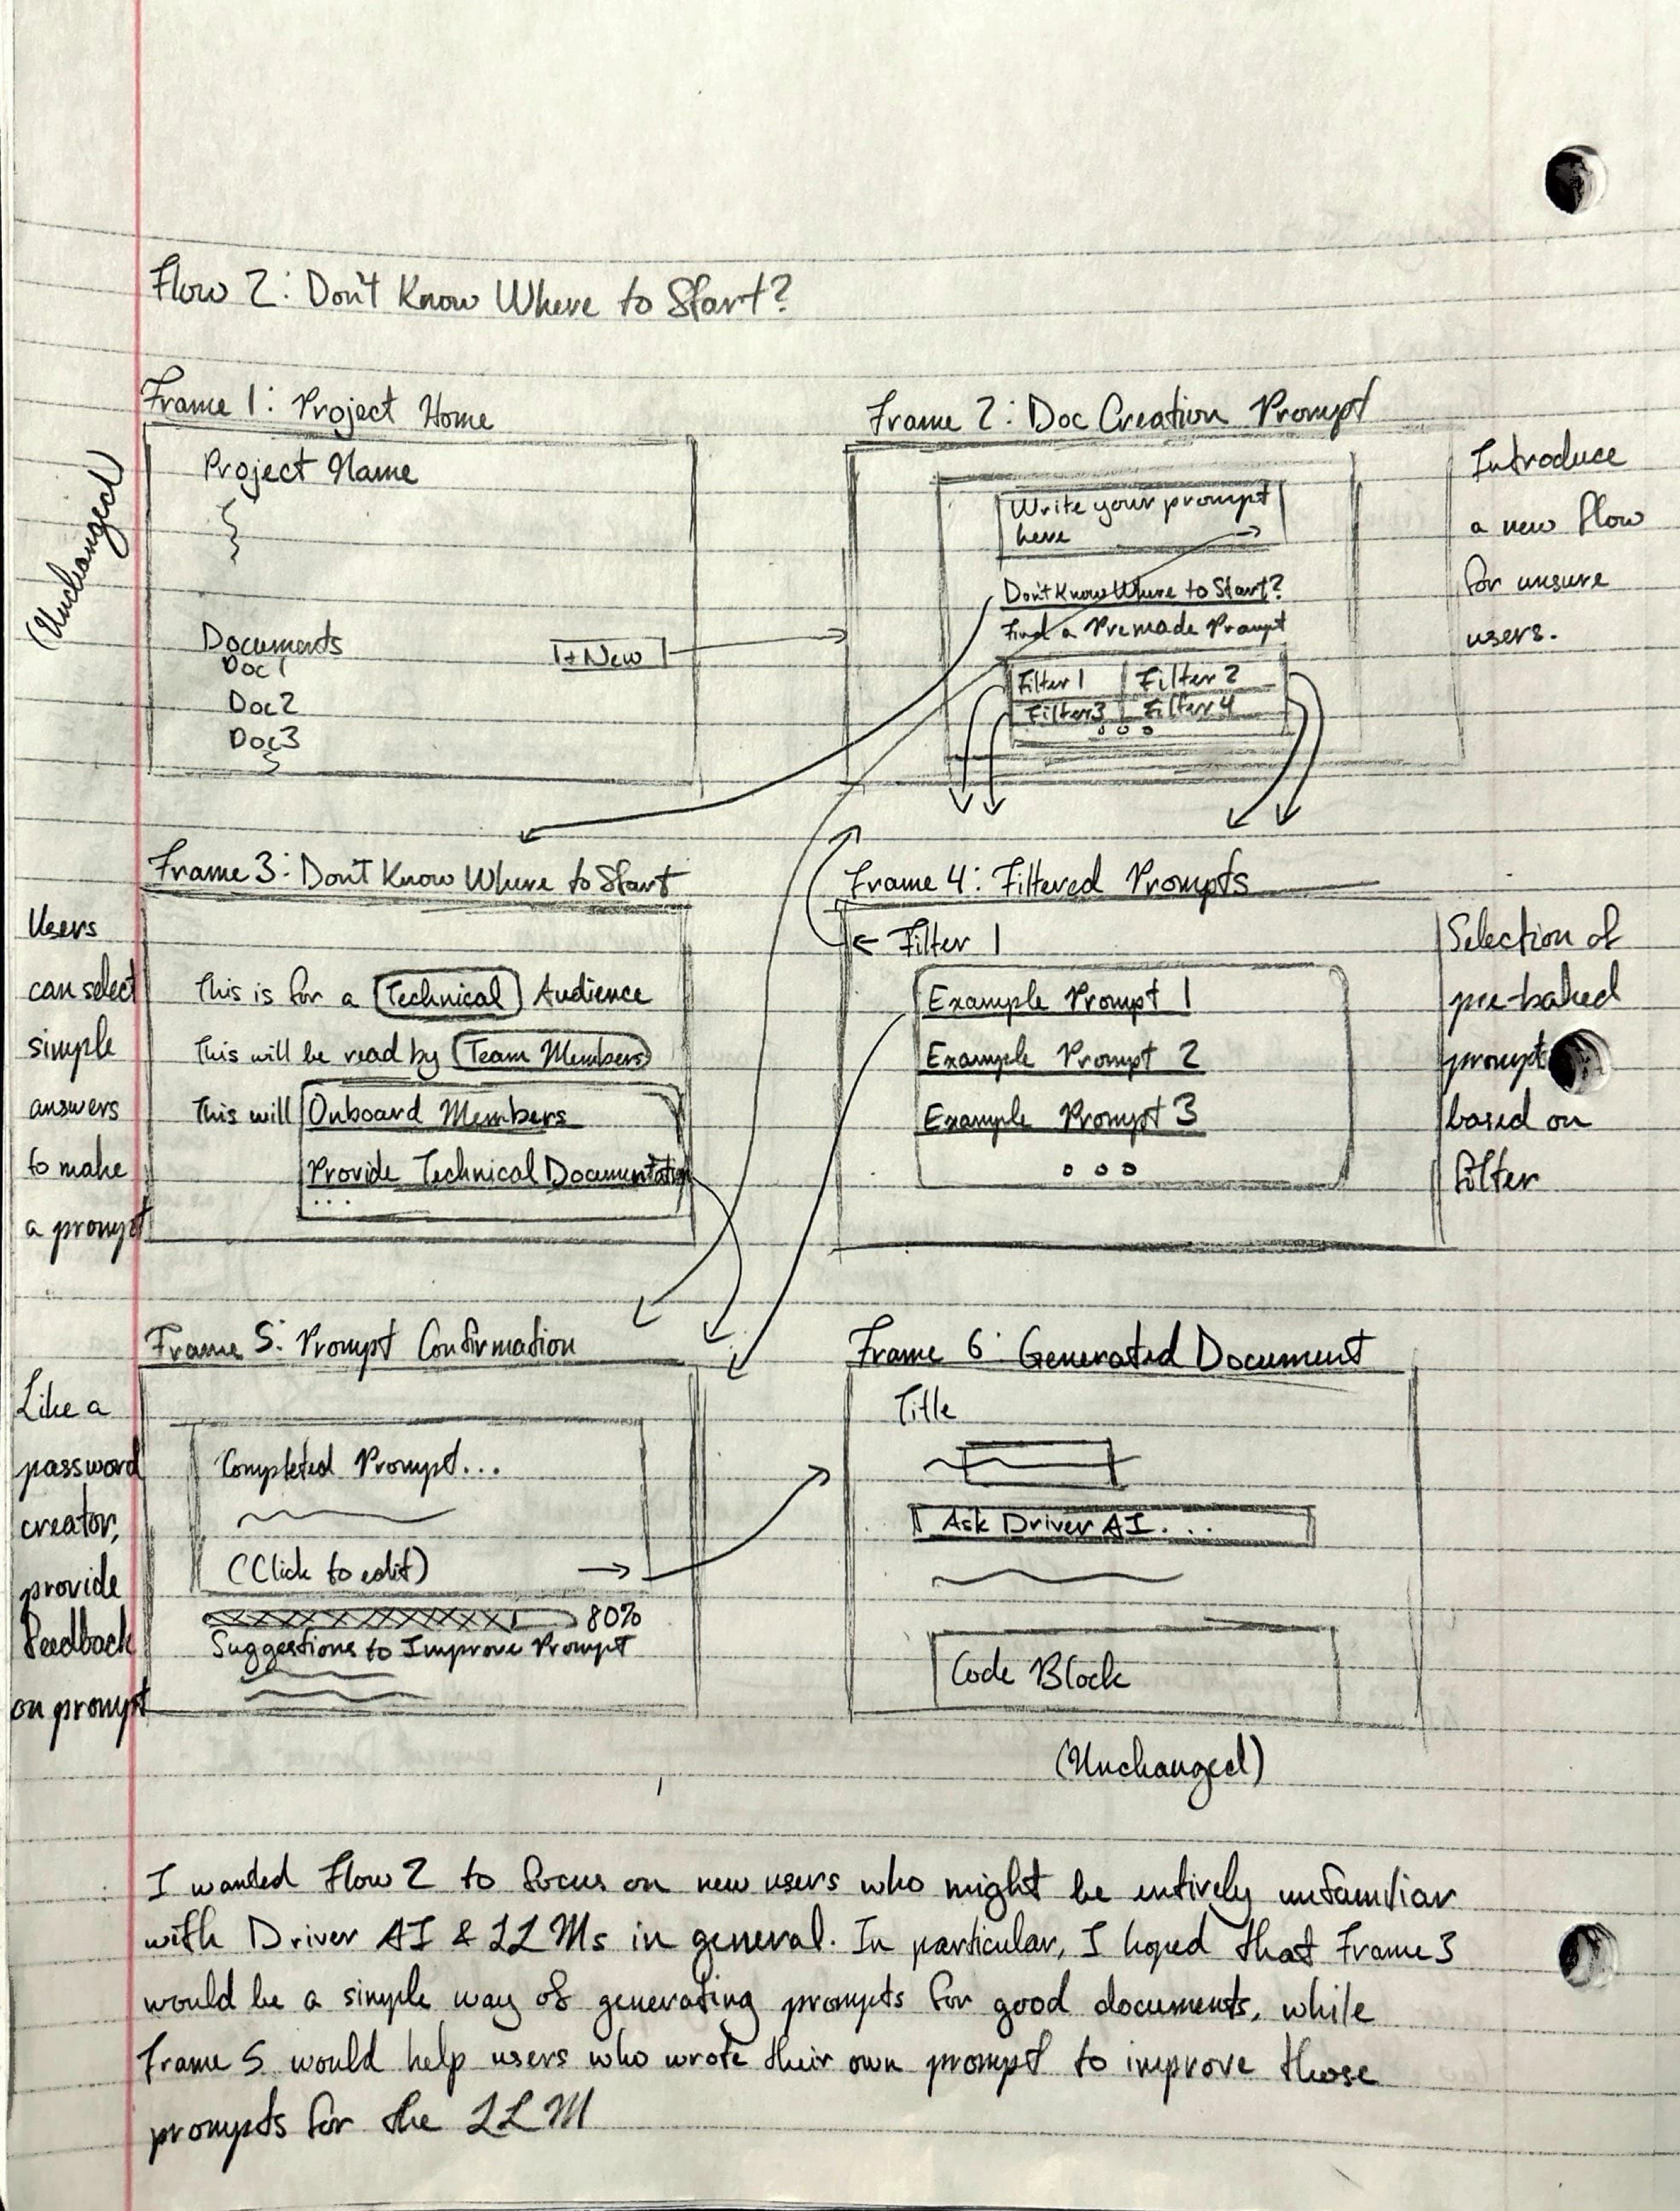 Flow 2: Don't Know Where to Start?
Frame 1: Project Home
(Unchanged)
Project Name
Documents
Doc1
Doc2
Doc3
+New
Frame 2: Doc Creation Prompt
Write your prompt
here →
Don't Know Where to Start?
Find a Premade Prompt
Filter 1 Filter 2
Filter3 Filter 4
Introduce
a new flow
for unsure
users.
Frame 3: Don't Know Where to Start
Users
can select
simple
answers
to make
a prompt
This is for a Technical Audience
This will be read by Team Members
This will Onboard Members
Provide Technical Documentation
...
Frame 4: Filtered Prompts
← Filter 1
Example Prompt 1
Example Prompt 2
Example Prompt 3
Selection of
pre-baked
prompts
based on
filter
Frame 5: Prompt Confirmation
Like a
password
creator,
provide
feedback
on prompt
Completed Prompt...
(Click to edit) →
80%
Suggestions to Improve Prompt
Frame 6: Generated Document
Title
Ask Driver AI...
Code Block
(Unchanged)
I wanted Flow 2 to focus on new users who might be entirely unfamiliar
with Driver AI & LLMs in general. In particular, I hoped that Frame 3
would be a simple way of generating prompts for good documents, while
Frame 5 would help users who wrote their own prompt to improve those
prompts for the LLM